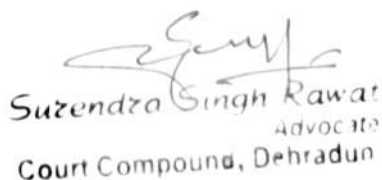 Surendra Singh Rawat
Advocate
Court Compound, Dehradun